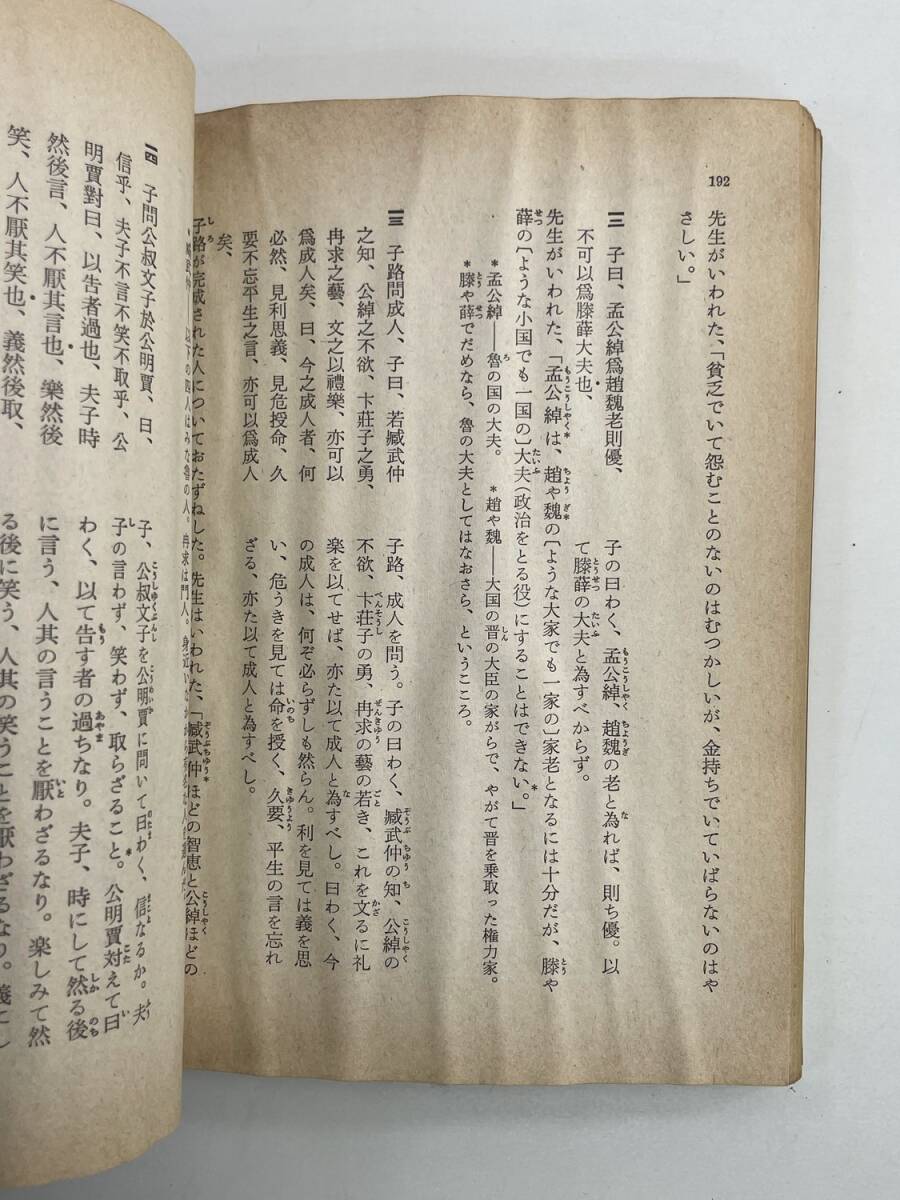 192
先生がいわれた、「貧乏でいて怨むことのないのはむつかしいが、金持ちでいていばらないのはや
さしい。」
子曰、孟公綽爲趙魏老則優、
不可以爲滕薛大夫也、
子の曰わく、孟公綽、趙魏の老と為れば、則ち優。以
て滕薛の大夫と為すべからず。
先生がいわれた、「孟公綽は、趙や魏の〔ような大家でも一家の〕家老となるには十分だが、滕や
薛の〔ような小国でも一国の〕大夫(政治をとる役)にすることはできない。」
*孟公綽——魯の国の大夫。 *趙や魏——大国の晋の大臣の家がらで、やがて晋を乗取った権力家。
*滕や薛でだめなら、魯の大夫としてはなおさら、というこころ。
子路問成人、子曰、若臧武仲
之知、公綽之不欲、卞莊子之勇、
冉求之藝、文之以禮樂、亦可以
爲成人矣、曰、今之成人者、何
必然、見利思義、見危授命、久
要不忘平生之言、亦可以爲成人
矣、
子路、成人を問う。子の曰わく、臧武仲の知、公綽の
不欲、卞荘子の勇、冉求の藝の若き、これを文るに礼
楽を以てせば、亦た以て成人と為すべし。曰わく、今
の成人は、何ぞ必らずしも然らん。利を見ては義を思
い、危うきを見ては命を授く、久要、平生の言を忘れ
ざる、亦た以て成人と為すべし。
子路が完成された人についておたずねした。先生はいわれた、「臧武仲ほどの智恵と公綽ほどの
子問公叔文子於公明賈、曰、
信乎、夫子不言不笑不取乎、公
明賈對曰、以吿者過也、夫子時
然後言、人不厭其言也、樂然後
笑、人不厭其笑也、義然後取、
子、公叔文子を公明賈に問いて曰わく、信なるか。夫
子の言わず、笑わず、取らざること。公明賈対えて曰
わく、以て告す者の過ちなり。夫子、時にして然る後
に言う、人其の言うことを厭わざるなり。楽しみて然
る後に笑う、人其の笑うことを厭わざるなり。義にし